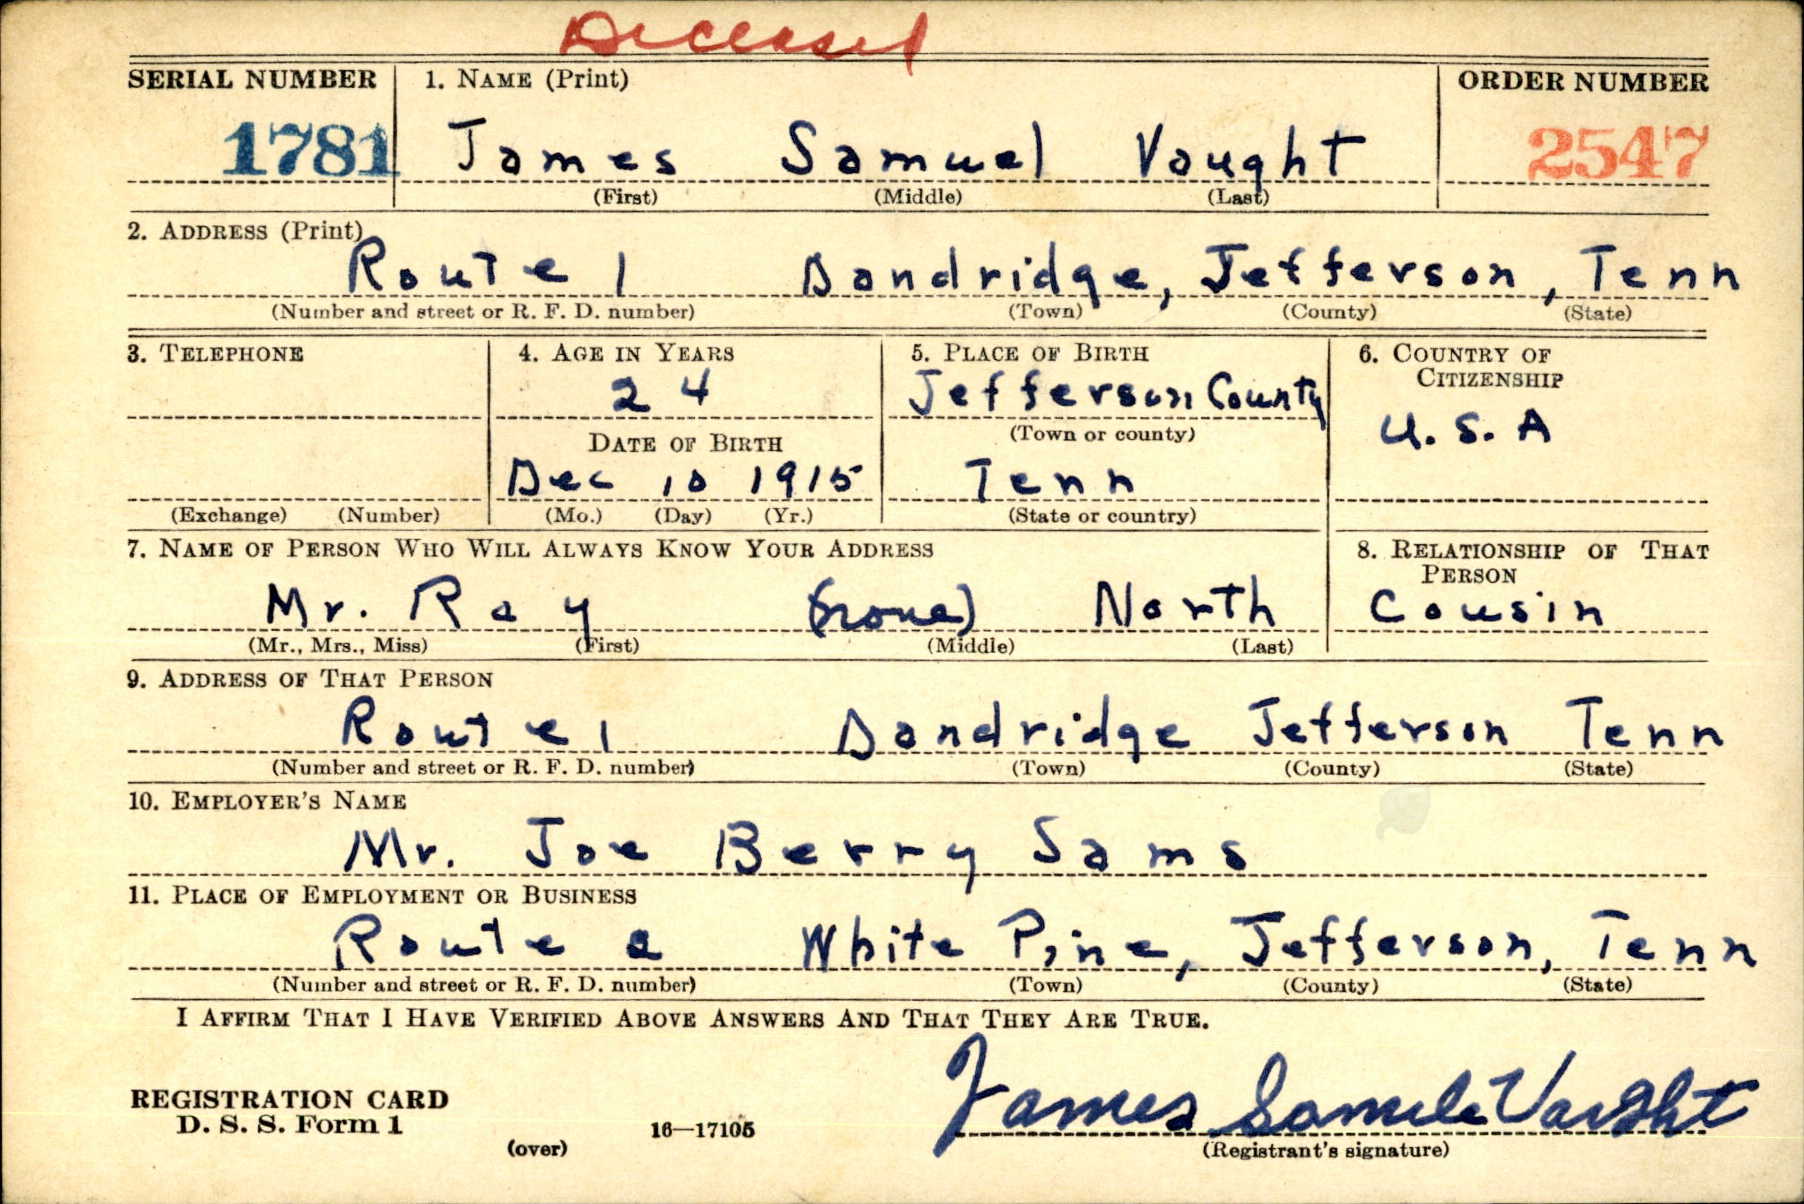 Deceased
SERIAL NUMBER 1. NAME (Print) ORDER NUMBER
1781 James Samuel Vaught 2547
(First) (Middle) (Last)
2. ADDRESS (Print)
Route 1 Dandridge, Jefferson, Tenn
(Number and street or R. F. D. number) (Town) (County) (State)
3. TELEPHONE 4. AGE IN YEARS 5. PLACE OF BIRTH 6. COUNTRY OF
CITIZENSHIP
24 Jefferson County U.S.A
DATE OF BIRTH (Town or county)
Dec 10 1915 Tenn
(Exchange) (Number) (Mo.) (Day) (Yr.) (State or country)
7. NAME OF PERSON WHO WILL ALWAYS KNOW YOUR ADDRESS 8. RELATIONSHIP OF THAT
PERSON
Mr. Ray (none) North Cousin
(Mr., Mrs., Miss) (First) (Middle) (Last)
9. ADDRESS OF THAT PERSON
Route 1 Dandridge Jefferson Tenn
(Number and street or R. F. D. number) (Town) (County) (State)
10. EMPLOYER'S NAME
Mr. Joe Berry Sams
11. PLACE OF EMPLOYMENT OR BUSINESS
Route 2 White Pine, Jefferson, Tenn
(Number and street or R. F. D. number) (Town) (County) (State)
I AFFIRM THAT I HAVE VERIFIED ABOVE ANSWERS AND THAT THEY ARE TRUE.
James Samule Vaught
REGISTRATION CARD
D. S. S. Form 1
(over) 16—17105 (Registrant's signature)